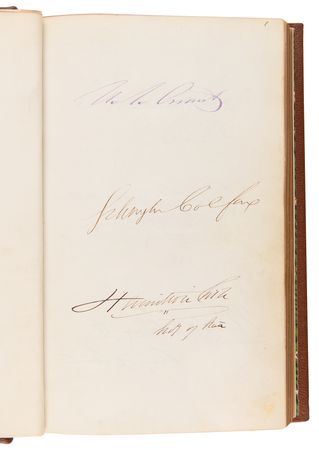 U. S. Grant
Schuyler Colfax
Hamilton Fish
Secy of State